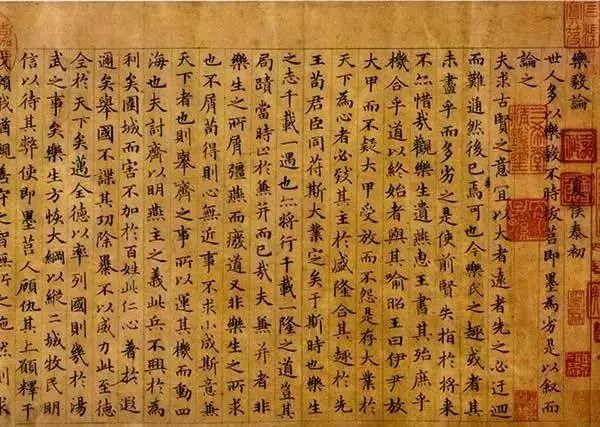 樂毅論 夏侯泰初
世人多以樂毅不時拔莒即墨為劣是以叙而
論之
夫求古賢之意宜以大者遠者先之必迂迴
而難通然後已焉可也今樂氏之趣或者其
未盡乎而多劣之是使前賢失指於將来
不亦惜哉觀樂生遺燕惠王書其殆庶乎
機合乎道以終始者與其喻昭王曰伊尹放
大甲而不疑大甲受放而不怨是存大業於
天下為心者必致其主於盛隆合其趣於先
王苟君臣同符斯大業定矣于斯時也樂生
之志千載一遇也亦將行千載一隆之道豈其
局蹟當時止於兼并而已哉夫兼并者非
樂生之所屑彊燕而廢道又非樂生之所求
也不屑苟得則心無近事不求小成斯意兼
天下者也則舉齊之事所以運其機而動四
海也夫討齊以明燕主之義此兵不興於為
利矣圍城而害不加於百姓此仁心著於遐
邇矣舉國不謀其功除暴不以威力此至德
全於天下矣邁全德以率列國則幾於湯
武之事矣樂生方恢大綱以縱二城牧民明
信以待其弊使即墨莒人顧仇其上願釋干
賴我猶親善守之智無所之施然則求